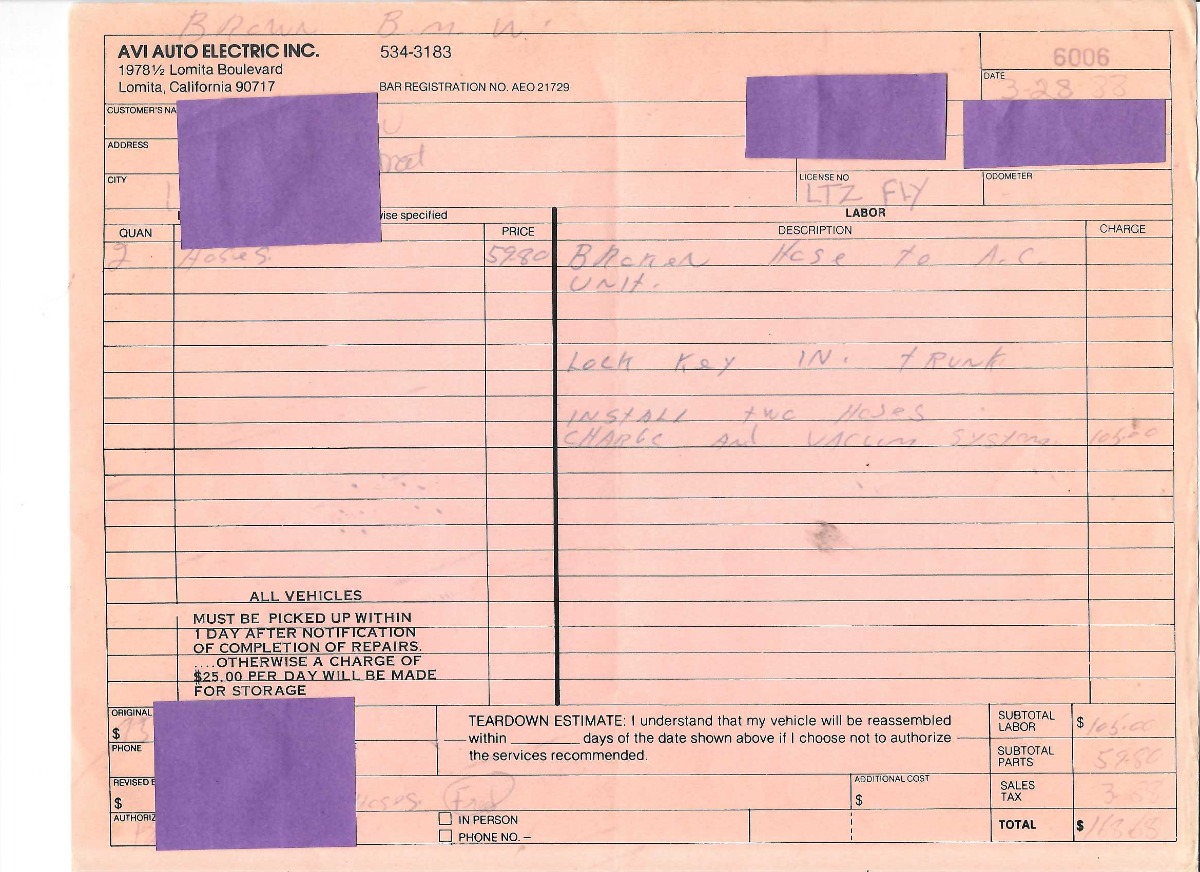 Brown B.M.W.
AVI AUTO ELECTRIC INC. 534-3183
1978½ Lomita Boulevard
Lomita, California 90717
BAR REGISTRATION NO. AEO 21729
6006
DATE
3-28-88
CUSTOMER'S NA
ADDRESS
CITY
LICENSE NO
LTZ FLY
ODOMETER
ise specified
LABOR
QUAN PRICE DESCRIPTION CHARGE
2 Hoses 59.80 Broken Hose to A.C.
Unit.
Lock Key IN. trunk
INSTALL two Hoses
CHARGE and VACUUM System 105.00
ALL VEHICLES
MUST BE PICKED UP WITHIN
1 DAY AFTER NOTIFICATION
OF COMPLETION OF REPAIRS.
....OTHERWISE A CHARGE OF
$25.00 PER DAY WILL BE MADE
FOR STORAGE
ORIGINAL
$
PHONE
REVISED E
$
AUTHORIZ
TEARDOWN ESTIMATE: I understand that my vehicle will be reassembled
within ________ days of the date shown above if I choose not to authorize
the services recommended.
Hoses. Fred
IN PERSON
PHONE NO. –
ADDITIONAL COST
$
SUBTOTAL LABOR $ 105.00
SUBTOTAL PARTS 59.80
SALES TAX 3.88
TOTAL $ 168.68